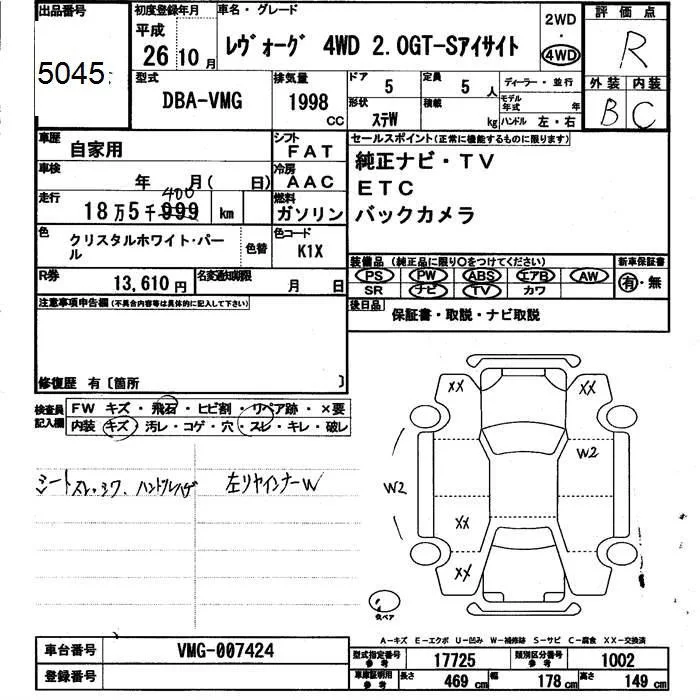 出品番号
5045
初度登録年月
平成
26 10 月
車名・グレード
レヴォーグ 4WD 2.0GT-Sアイサイト
2WD
・
4WD
評価点
R
外装 内装
B C
型式
DBA-VMG
排気量
1998 cc
ドア
5
定員
5 人
形状
ステW
積載
kg
ディーラー・並行
モデル年式 年
ハンドル 左・右
車歴
自家用
シフト
FAT
車検
年 月( 日)
冷房
AAC
走行
400
18万5千999 km
燃料
ガソリン
色
クリスタルホワイト・パール
色替
色コード
K1X
R券
13,610円
名変通知期限
月 日
セールスポイント(正常に機能するものに限ります)
純正ナビ・TV
ETC
バックカメラ
装備品 (純正品に限り○をつけてください)
新車保証書
PS PW ABS エアB AW
SR ナビ TV カワ
有・無
後日品
保証書・取説・ナビ取説
注意事項申告欄 (不具合内容等は具体的に記入して下さい)
修復歴 有〔箇所 〕
検査員記入欄
FW キズ・飛石・ヒビ割・リペア跡・×要
内装 キズ・汚レ・コゲ・穴・スレ・キレ・破レ
シートスレ・シワ、ハンドルハゲ
左リヤインナーW
XX XX
W2
W2
XX
XX
A-キズ E-エクボ U-凹み W-補修跡 S-サビ C-腐食 XX-交換済
車台番号
VMG-007424
登録番号
型式指定番号 参考
17725
類別区分番号 参考
1002
車庫証明用 参考
長さ 469 cm
幅 178 cm
高さ 149 cm